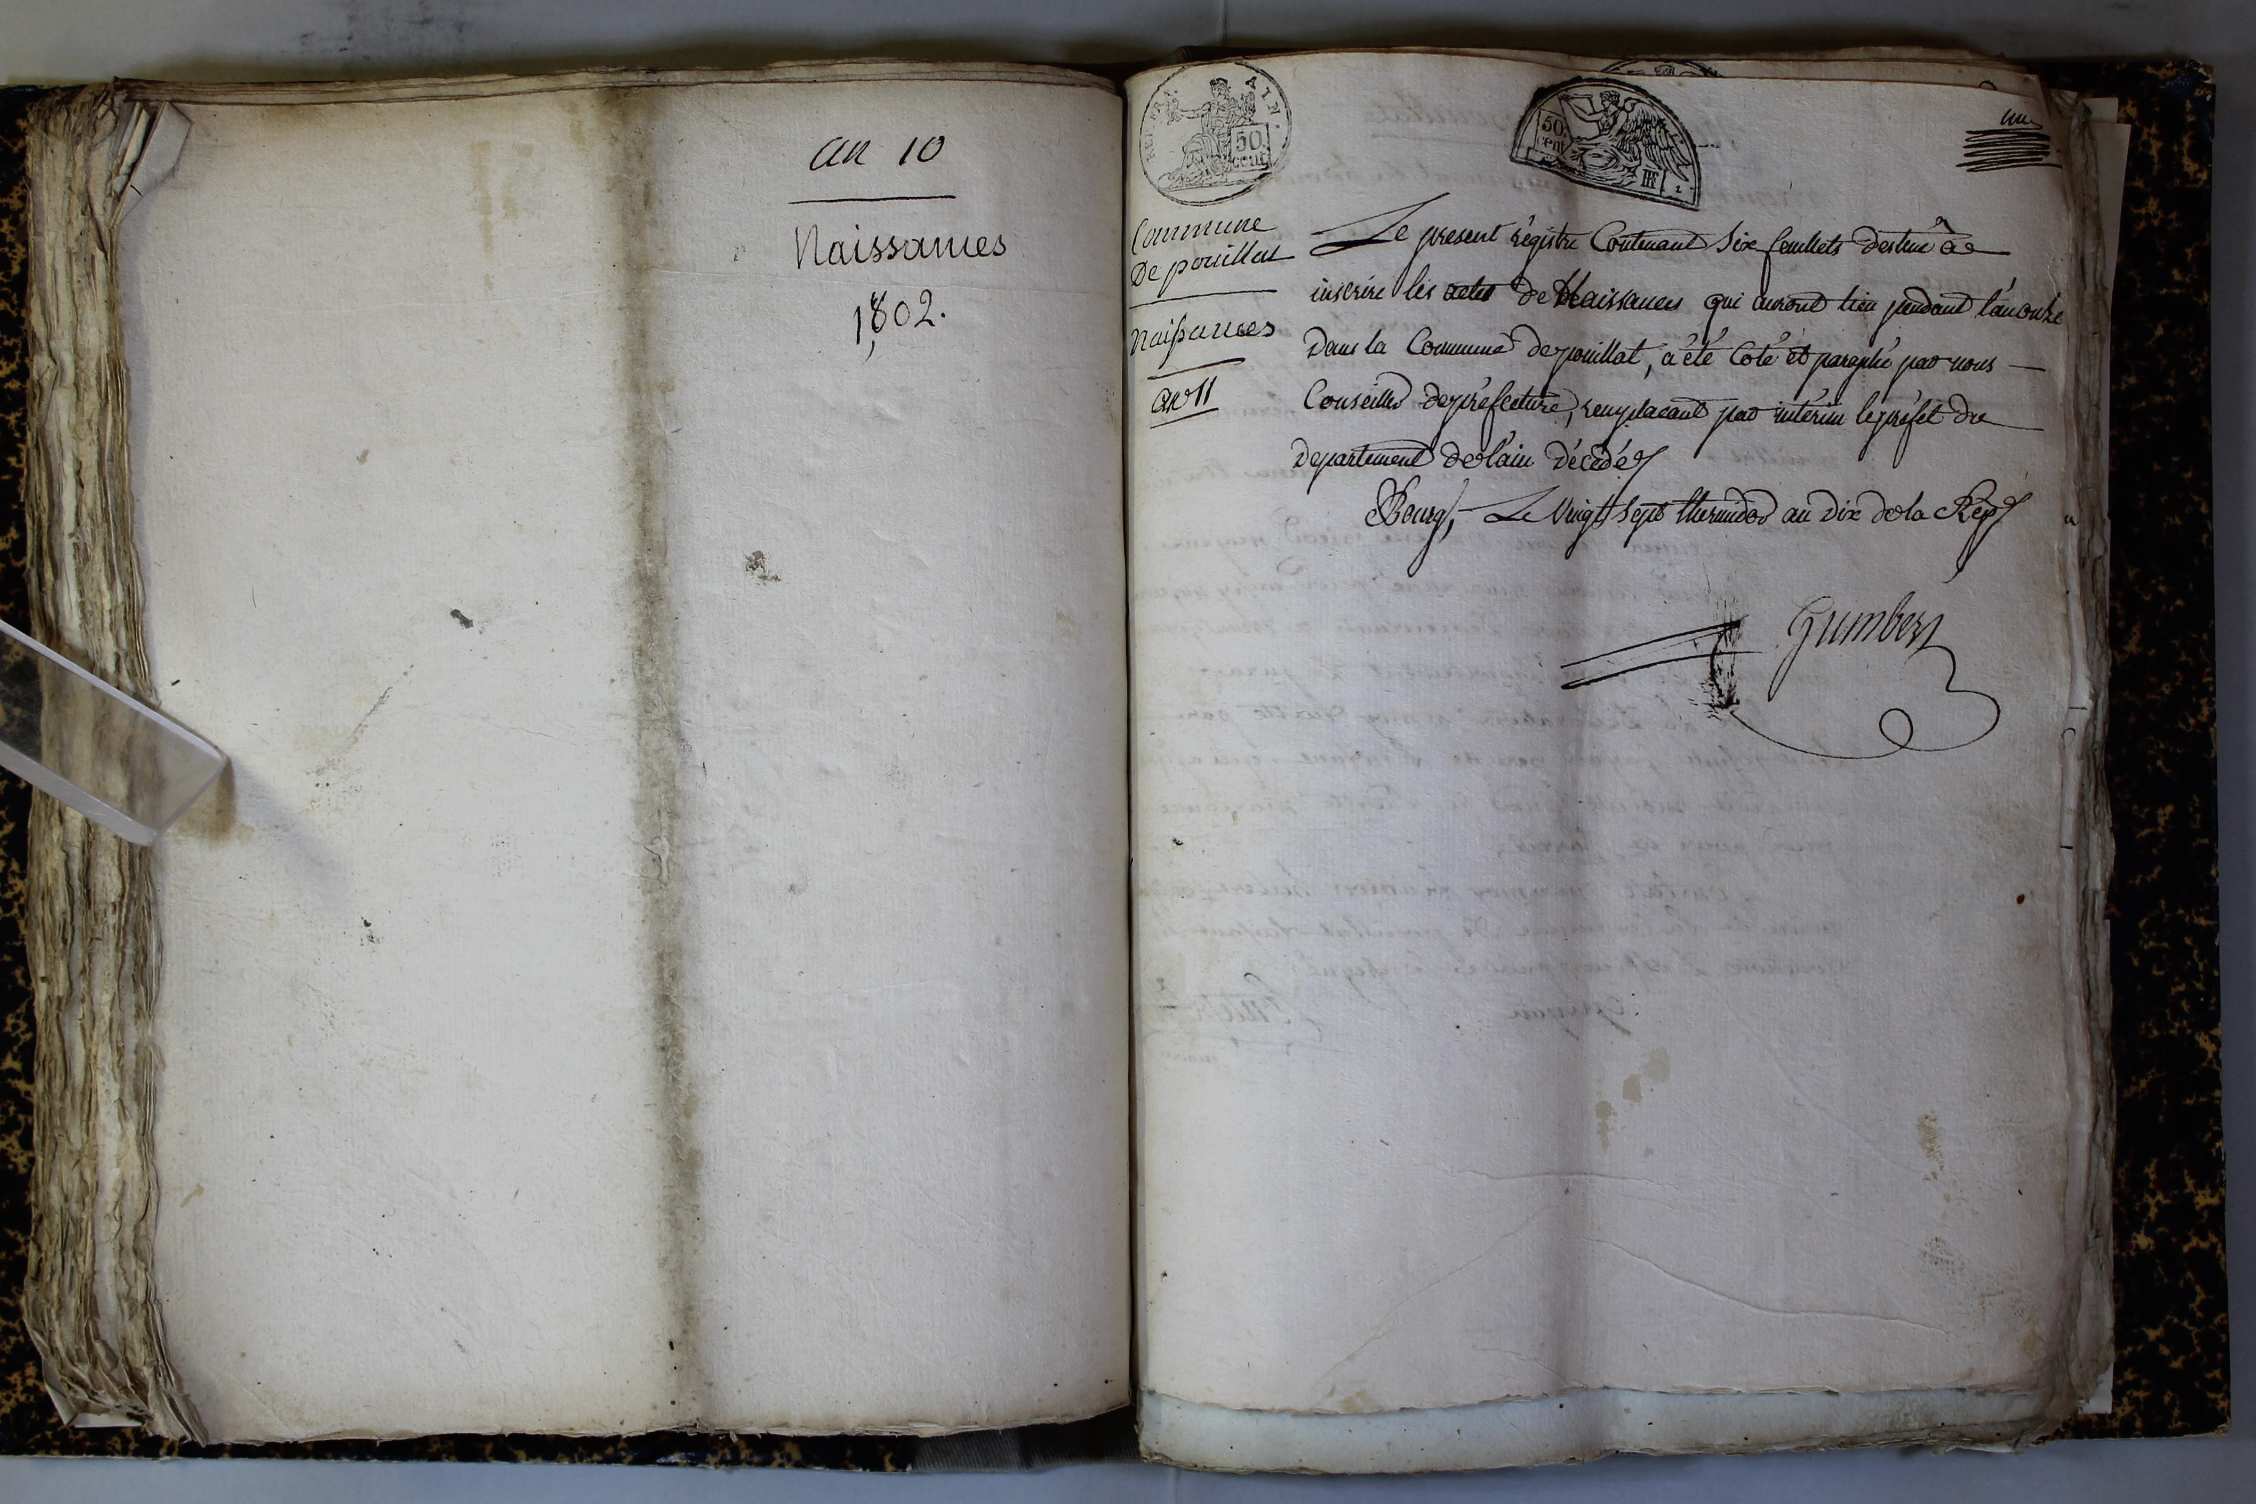 an 10
Naissances
1802.
REP. FRA.
AIN.
50.
cent.
50.
cent
RF
une
Commune
De pouillat
Naissances
an 11
Le present régistre Contenant Six feuillets destiné à
inscrire les actes de Naissances qui auront lieu pendant l'an onze
Dans la Commune de pouillat, a été Coté et paraphé par nous
Conseiller de préfecture, remplacant par intérim le préfet du
Departement de l'ain Décédé
Bourg, Le Vingt Sept thermidor an Dix de la Rép